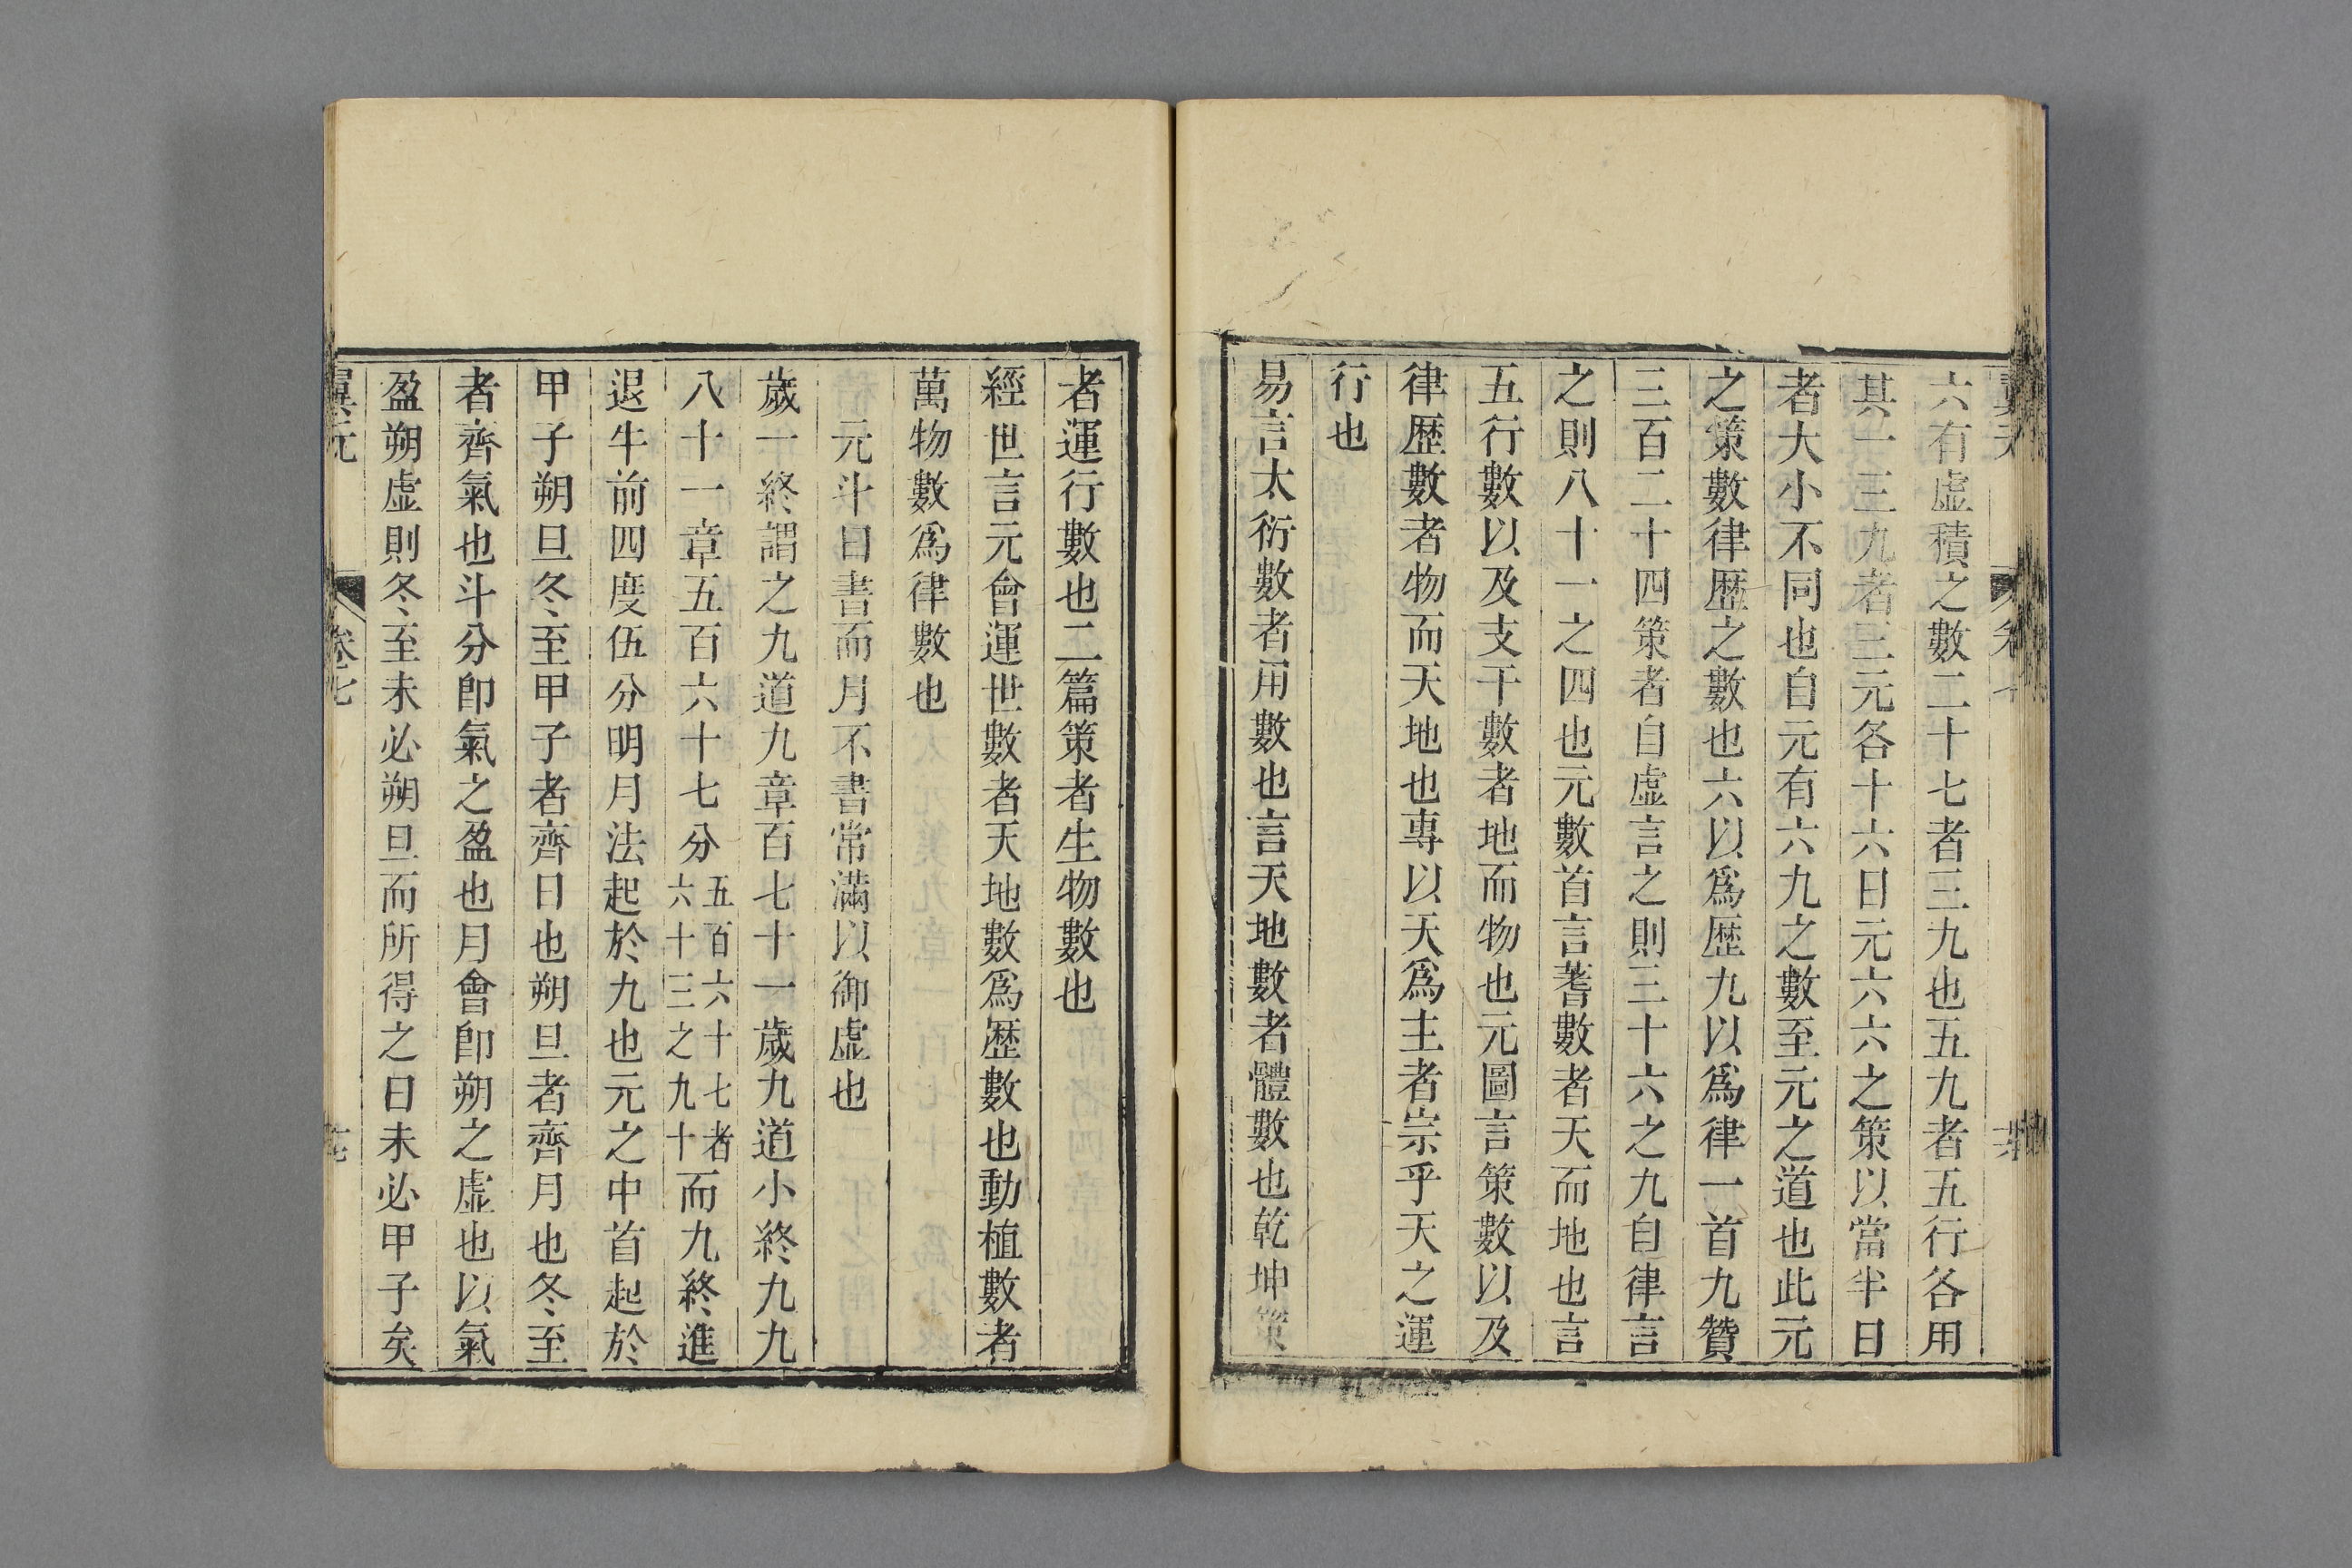 六有虛積之數二十七者三九也五九者五行各用
其一三九者三元各十六日元六六之策以當半日
者大小不同也自元有六九之數至元之道也此元
之策數律歴之數也六以爲歴九以爲律一首九贊
三百二十四策者自虛言之則三十六之九自律言
之則八十一之四也元數首言蓍數者天而地也言
五行數以及支干數者地而物也元圖言策數以及
律歴數者物而天地也專以天爲主者宗乎天之運
行也
易言太衍數者用數也言天地數者體數也乾坤策
者運行數也二篇策者生物數也
經世言元會運世數者天地數爲歴數也動植數者
萬物數爲律數也
元斗日書而月不書常滿以御虛也
歲一終謂之九道九章百七十一歲九道小終九九
八十一章五百六十七分五百六十七者六十三之九十而九終進
退牛前四度伍分明月法起於九也元之中首起於
甲子朔旦冬至甲子者齊日也朔旦者齊月也冬至
者齊氣也斗分卽氣之盈也月會卽朔之虛也以氣
盈朔虛則冬至未必朔旦而所得之日未必甲子矣
翼元 卷七